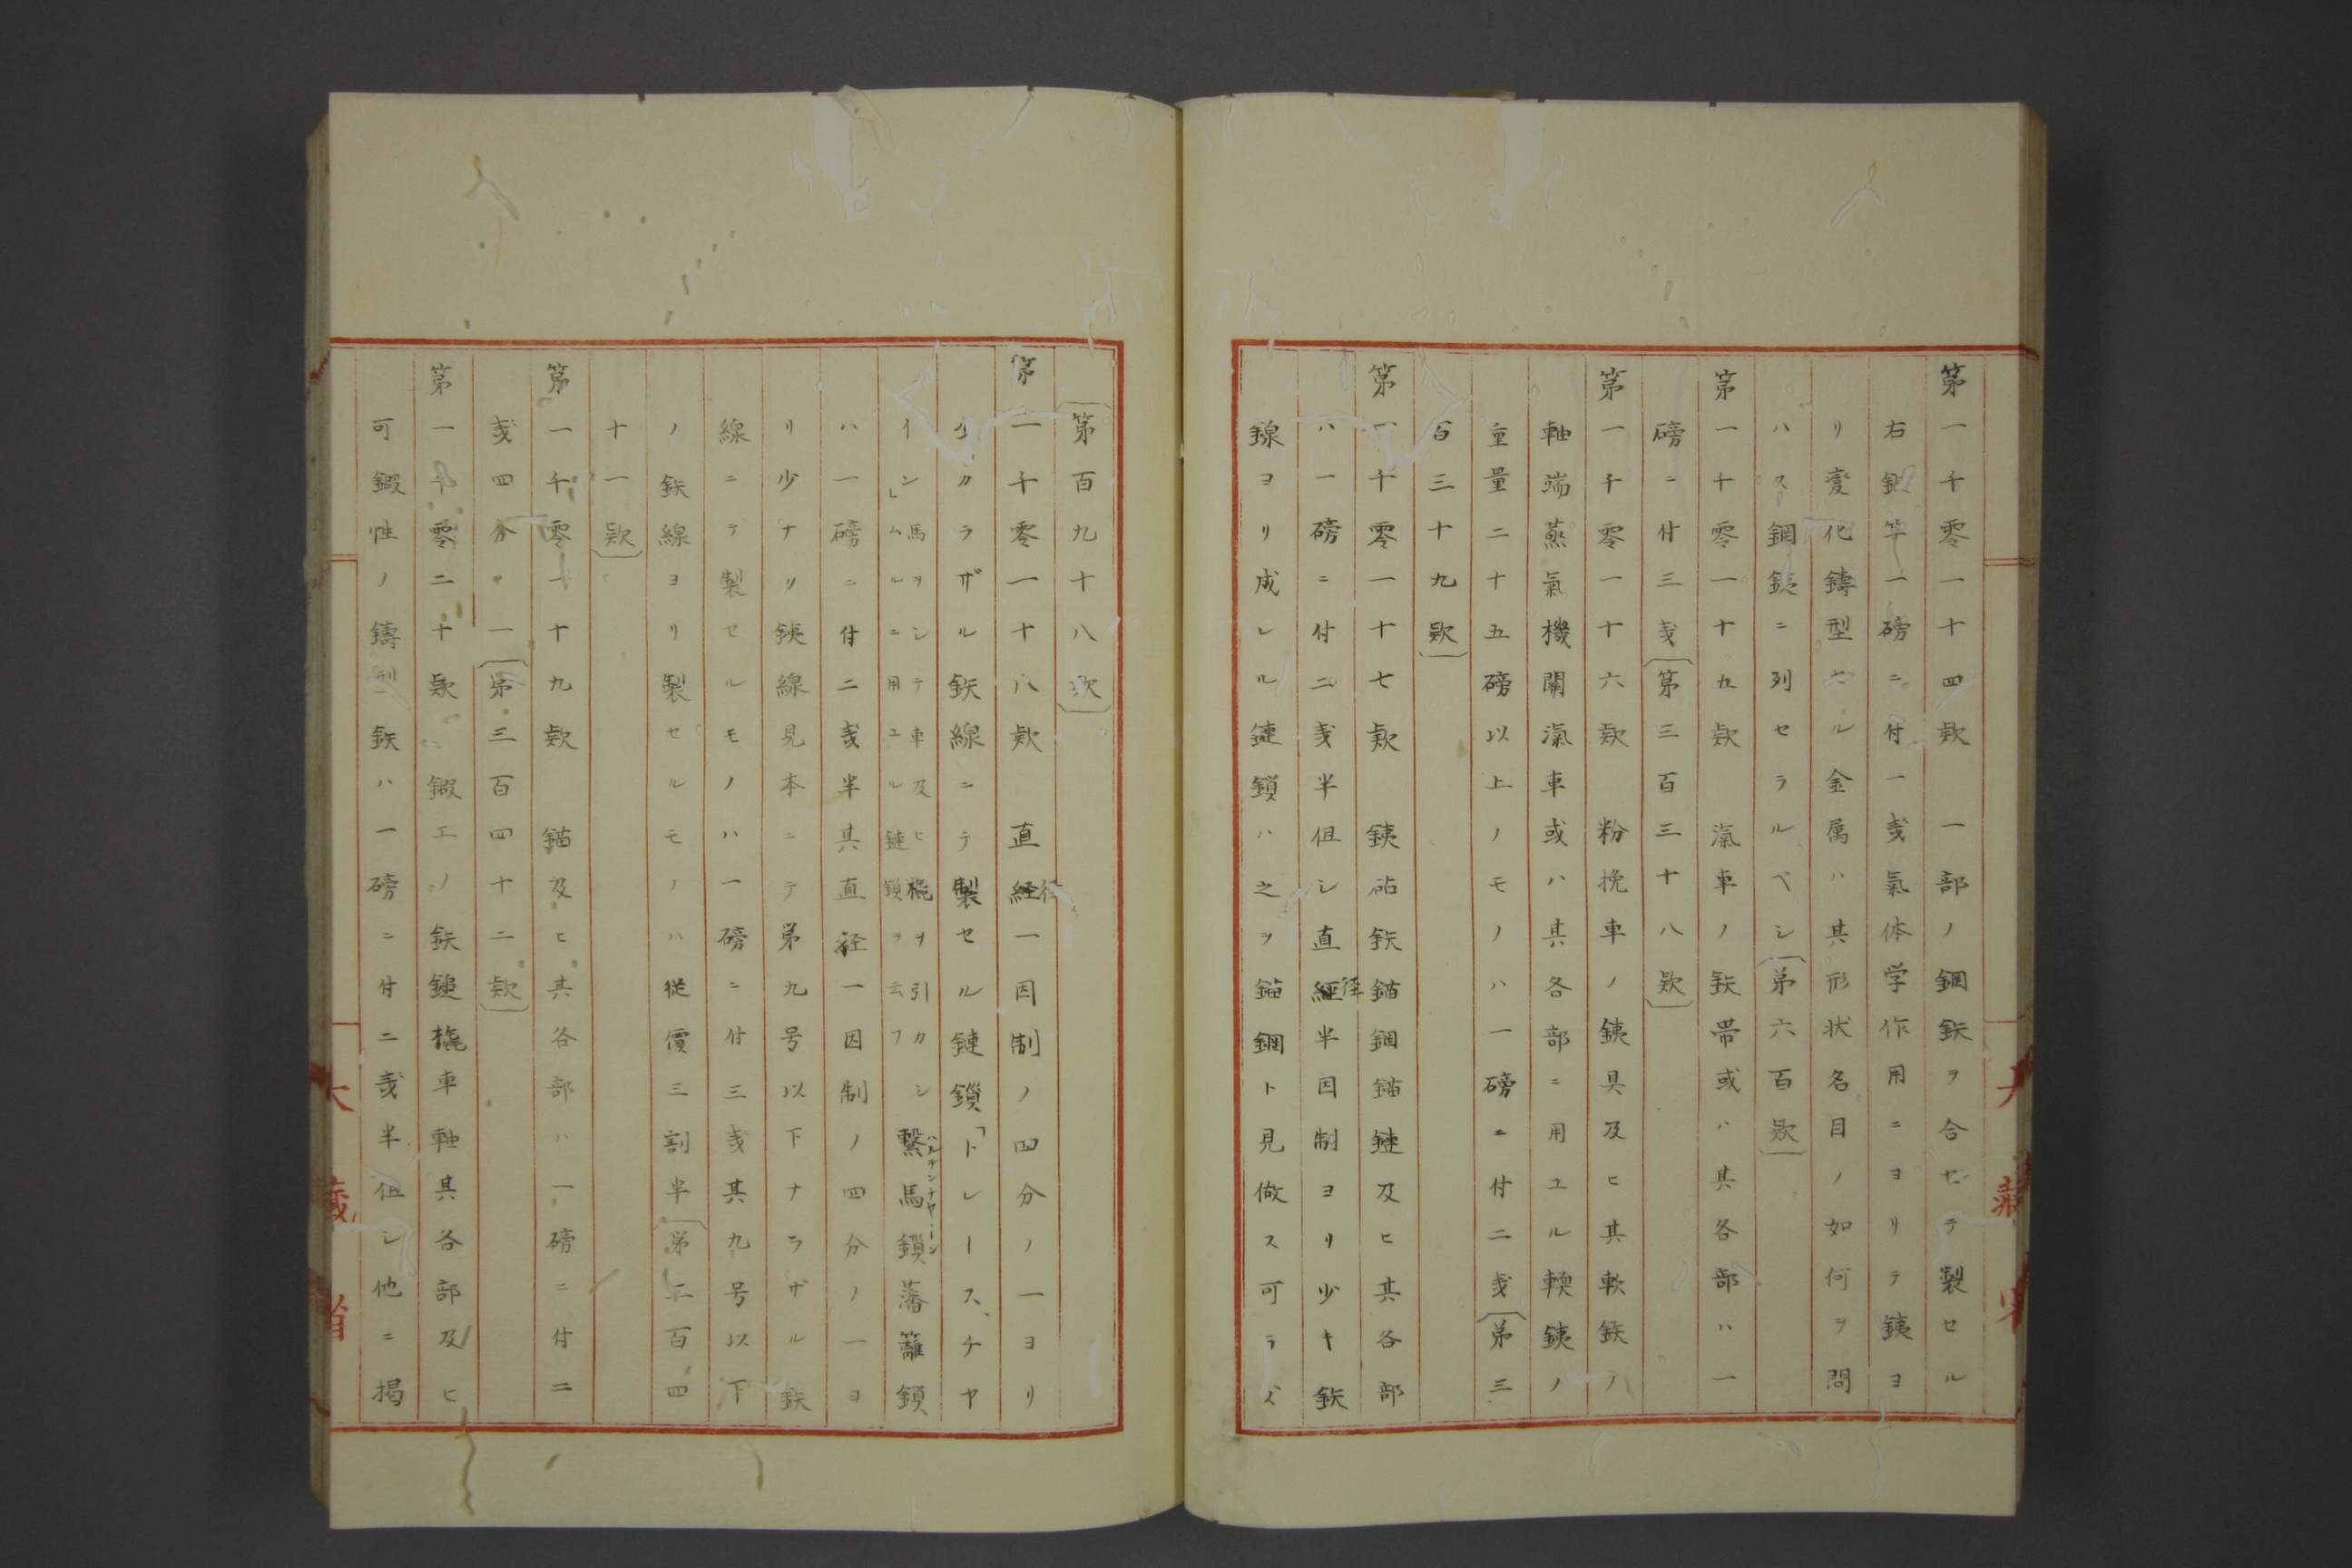 第一千零一十四款　一部ノ鋼鉄ヲ合セテ製セル
右鉄竿一磅ニ付一戔氣体学作用ニヨリテ銕ヨ
リ変化鑄型セル金属ハ其形状名目ノ如何ヲ問
ハス鋼銕ニ列セラルベシ〔第六百款〕
第一千零一十五款　滊車ノ鉄帯或ハ其各部ハ一
磅ニ付三戔〔第三百三十八款〕
第一千零一十六款　粉挽車ノ銕具及ヒ其軟鉄ノ
軸端蒸氣機關滊車或ハ其各部ニ用ユル輭銕ノ
重量二十五磅以上ノモノハ一磅ニ付二戔〔第三
百三十九款〕
第一千零一十七款　銕砧鉄錨鋼錨鏈及ヒ其各部
ハ一磅ニ付二戔半但シ直經半因制ヨリ少キ鉄
徑
線ヨリ成レル鏈鎖ハ之ヲ錨鋼ト見做ス可ラス
〔第百九十八款〕
第一千零一十八款　直経一因制ノ四分ノ一ヨリ
径
少カラザル鉄線ニテ製セル鏈鎖「トレースヽチヤ
イン」馬ヲシテ車及ヒ橇ヲ引カシ
ムルニ用エル鏈鎖ヲ云フ
繋馬鎖藩籬鎖
ハルタンチヤーン
ハ一磅ニ付二戔半其直径一因制ノ四分ノ一ヨ
リ少ナリ銕線見本ニテ第九号以下ナラザル鉄
線ニテ製セルモノハ一磅ニ付三戔其九号以下
ノ鉄線ヨリ製セルモノハ従價三割半〔第二百四
十一款〕
第一千零一十九款　錨及ヒ其各部ハ一磅ニ付二
戔四分ノ一〔第三百四十二款〕
第一千零二十款　鍛工ノ鉄鎚橇車軸其各部及ヒ
可鍛性ノ鑄型鉄ハ一磅ニ付二戔半但シ他ニ掲
大藏省